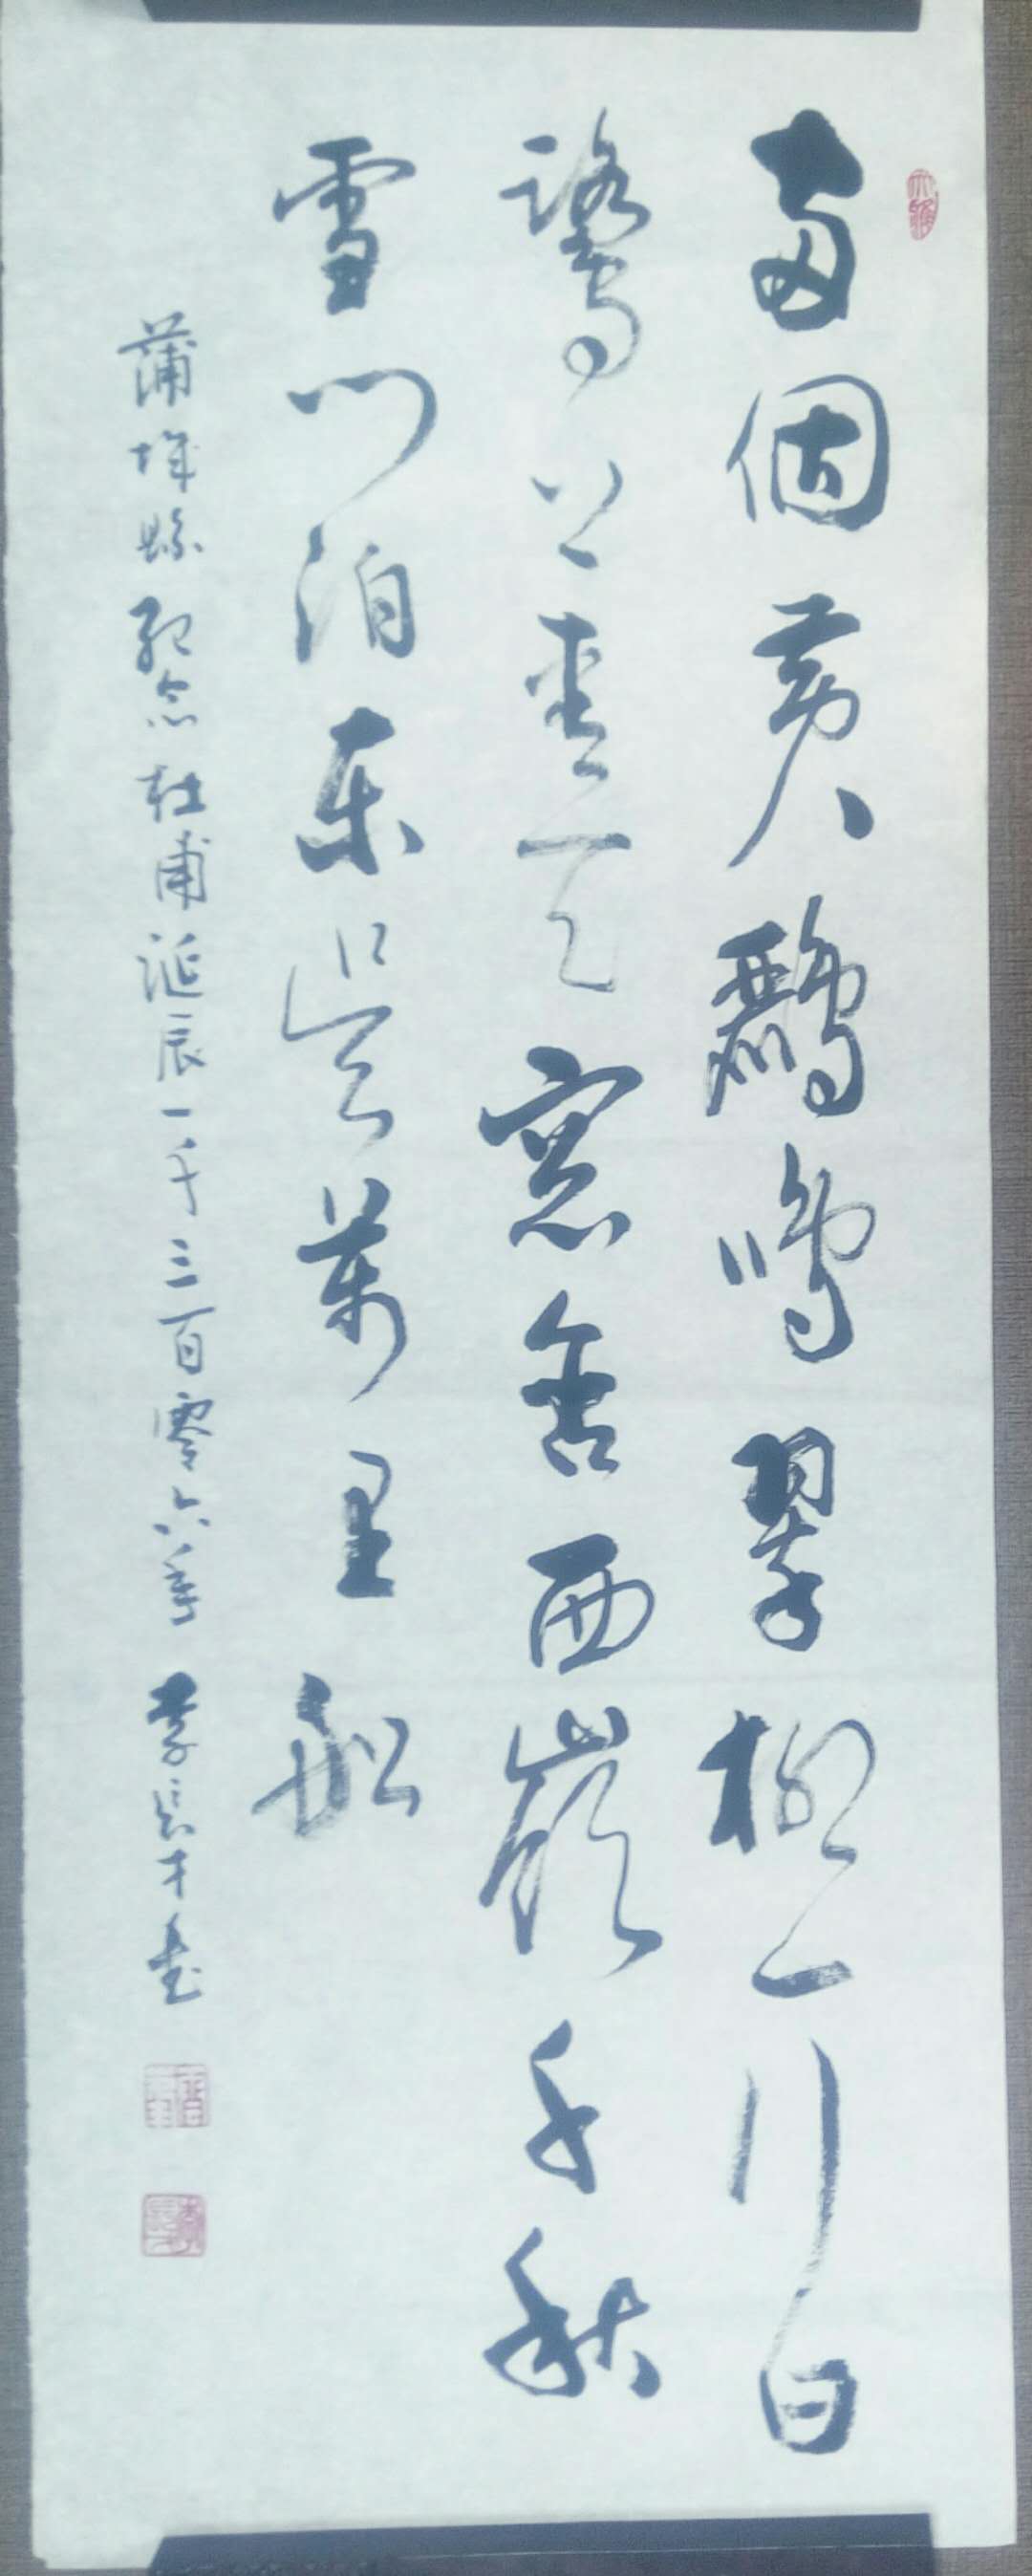 两個黄鸝鳴翠柳一行白
鷺上青天窓含西嶺千秋
雪門泊東吴萬里船
蒲城縣紀念杜甫誕辰一千三百零六年 李長才書